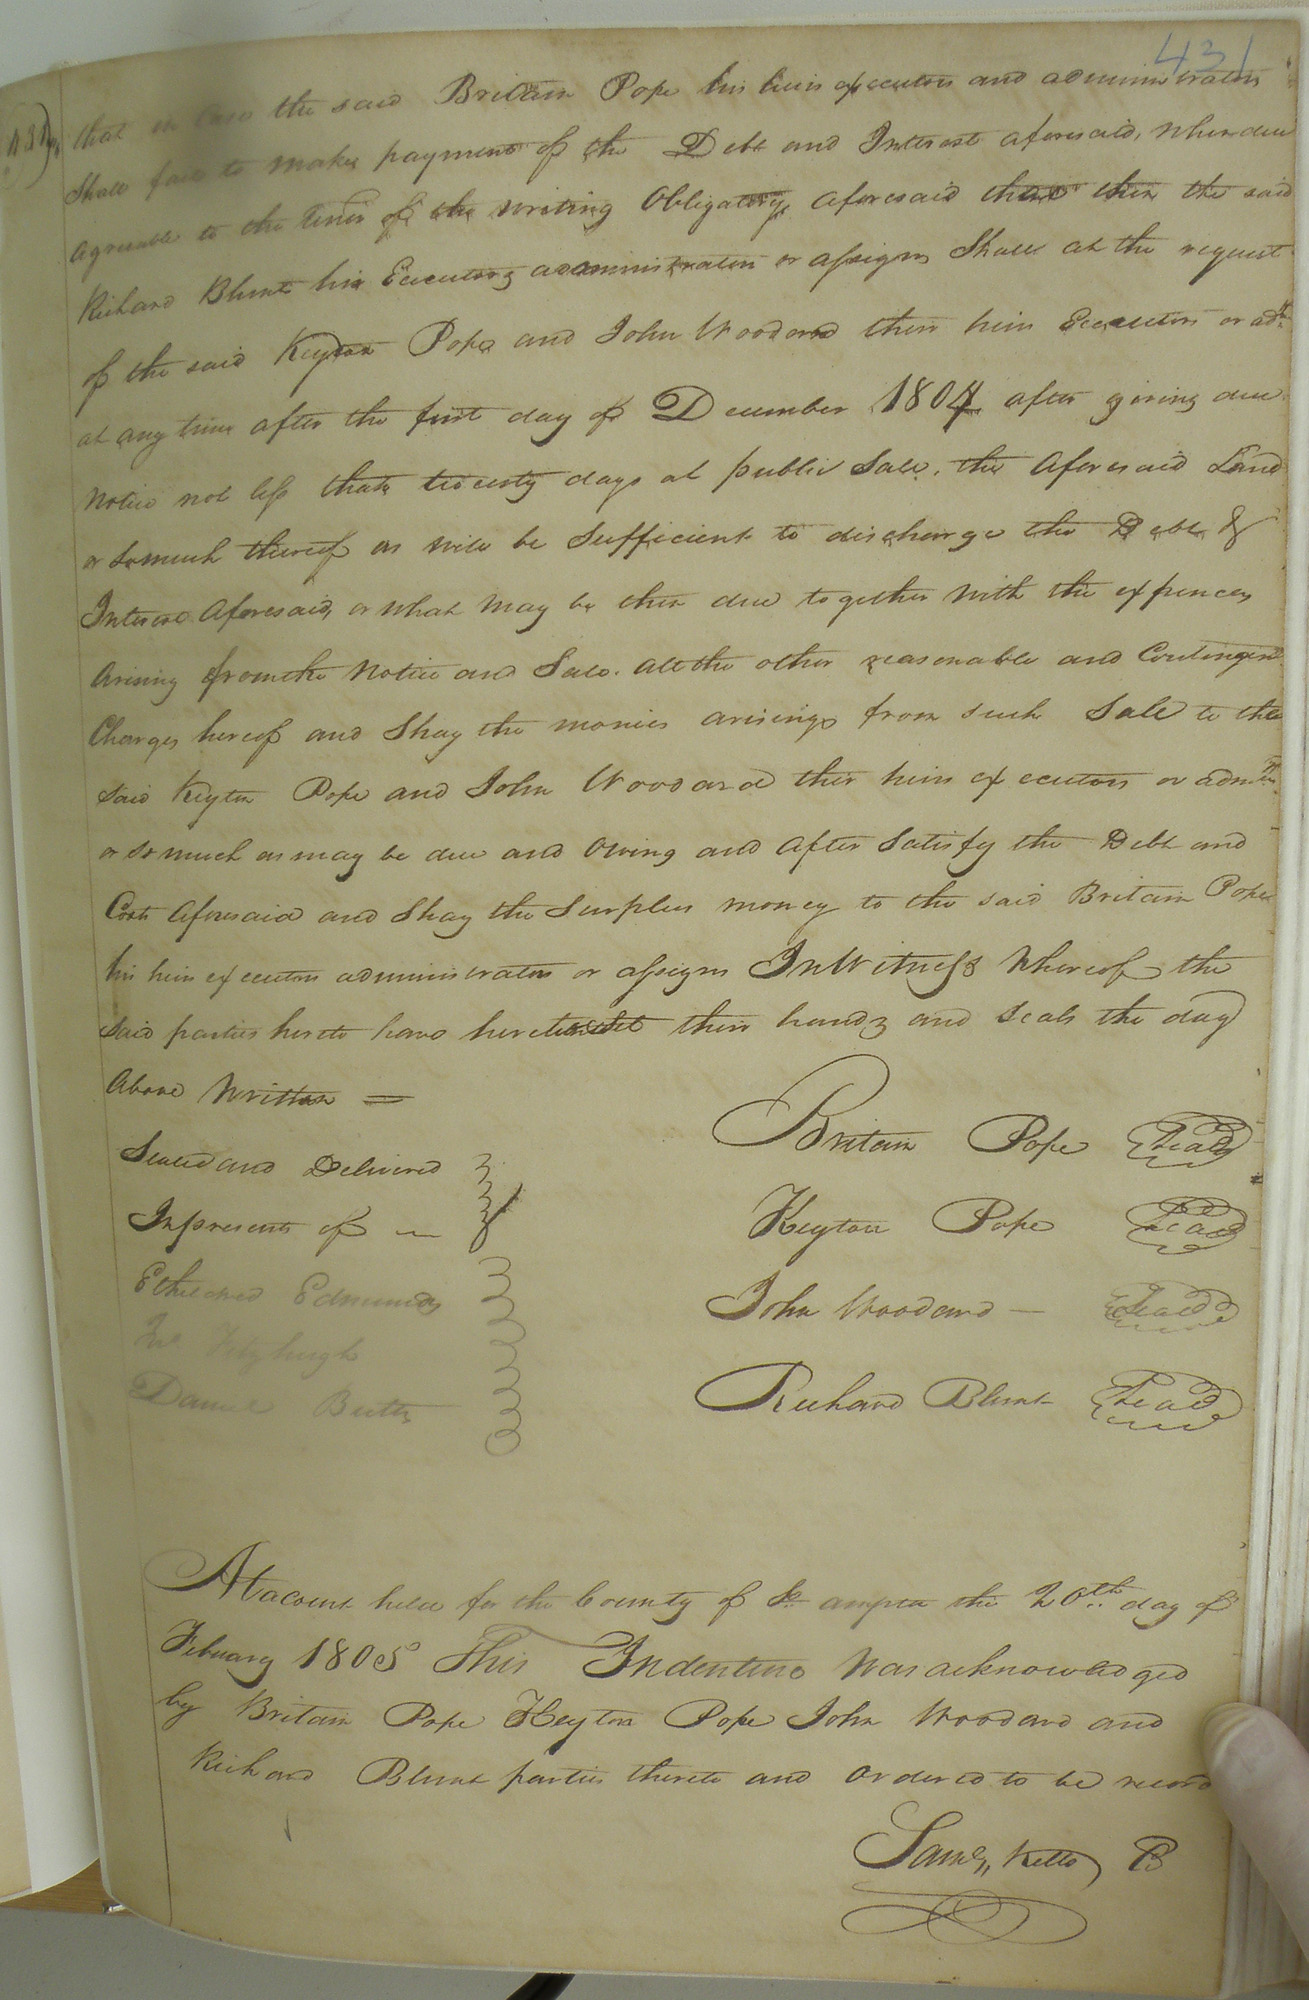 431
that in case the said Britain Pope his heirs executors and administrators
Shall fail to make payment of the Debt and Interest aforesaid, when due
agreeable to the tenor of the writing Obligatory aforesaid that then the said
Richard Blunt his Executors administrators or assigns Shall at the request
of the said Keyton Pope and John Woodard their heirs Executors or adrs
at any time after the first day of December 1804 after giving due
Notice not less than twenty days at public Sale, the Aforesaid Land
or so much thereof as will be Sufficient to discharge the Debt &
Interest Aforesaid, or what May be then due together With the expences
Arising from the Notice and Sale. all the other reasonable and Contingent
Charges hereof and Shay the monies arisings from such Sale to the
said Keyton Pope and John Woodard their heirs executors or admrs
or so much as may be due and Owing and After Satisfy the Debt and
Costs Aforesaid and Shay the Surplus money to the said Britain Pope
his heirs executors administrators or assigns In Witness Whereof the
said parties hereto have hereto set their hands and seals the day
Above Written =
Sealed and Delivered
In presents of —
Etheldred Edmunds
Fitzhugh
Daniel Butts
Britain Pope Seal
Keyton Pope Seal
John Woodard — Seal
Richard Blunt Seal
At a court held for the County of So ampton the 20th day of
Febuary 1805 This Indenture Was acknowledged
by Britain Pope Keyton Pope John Woodard and
Richard Blunt parties thereto and ordered to be record
Saml, Kello